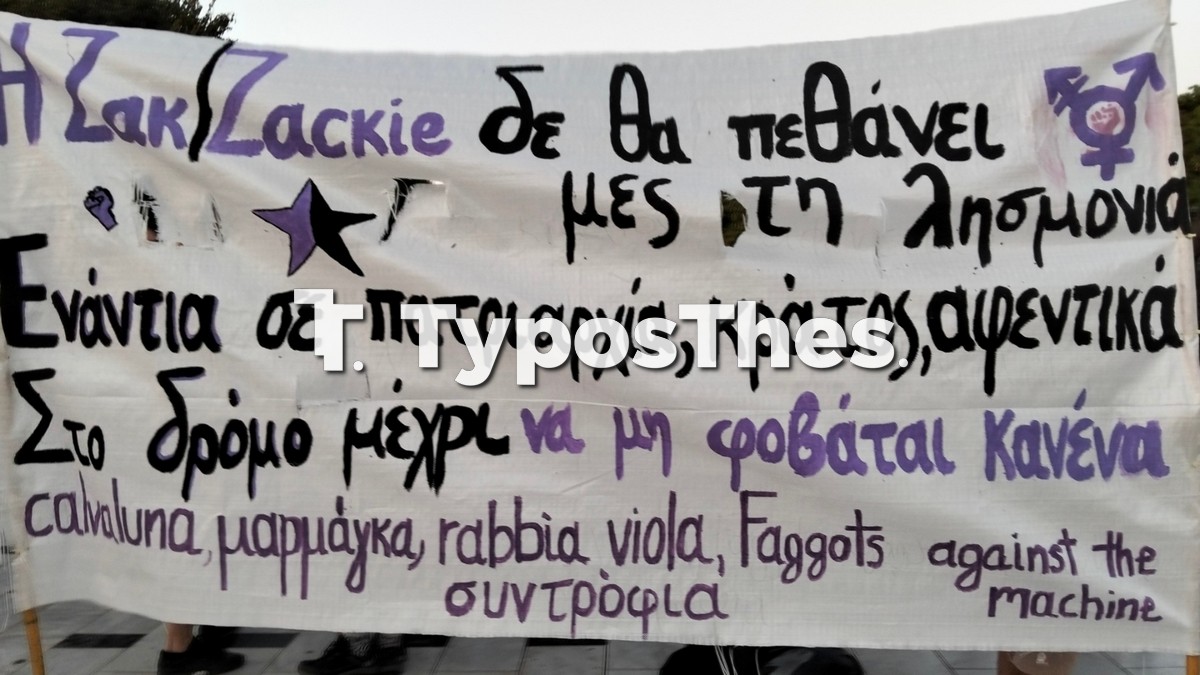 Η Ζακ/Zackie δε θα πεθάνει
μες τη λησμονιά
Ενάντια σε πατριαρχία, κράτος, αφεντικά
T. TyposThes.
Στο δρόμο μέχρι να μη φοβάται κανένα
calvaluna, μαρμάγκα, rabbia viola, Faggots against the machine
συντρόφια